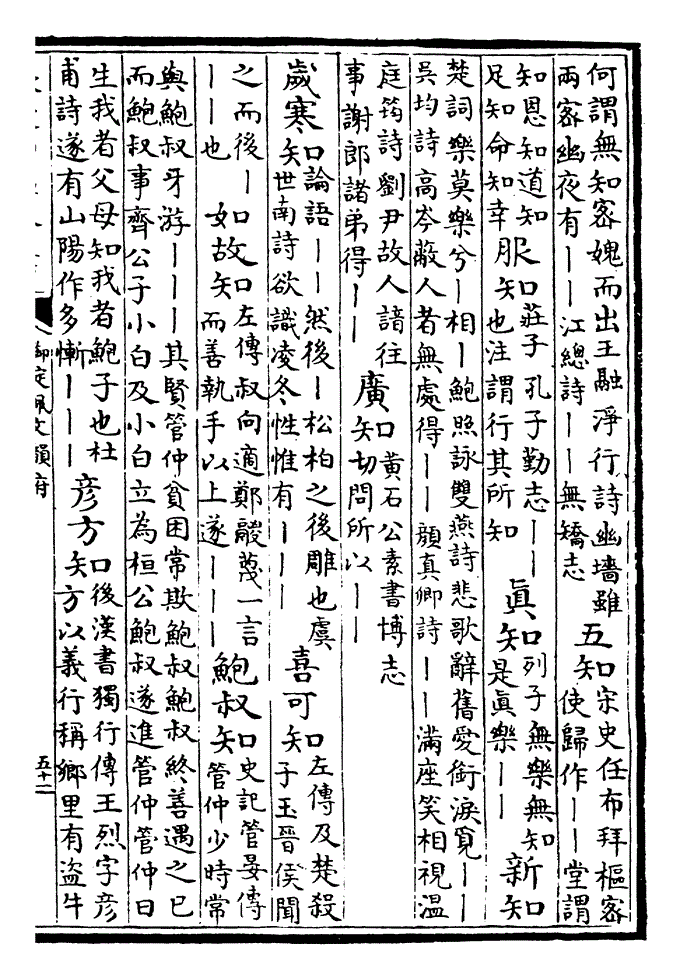 何謂無知宻媿而出王融淨行詩幽墻雖
兩宻幽夜有——江總詩——無矯志
五知
宋史任布拜樞宻
使歸作——堂謂
知恩知道知
足知命知幸
服知
莊子孔子勤志——
也注謂行其所知
眞知
列子無樂無知
是眞樂——
新知
楚詞樂莫樂兮—相—鮑照詠雙燕詩悲歌辭舊愛銜淚覓——
吳均詩高岑蔽人者無處得——顔真卿詩——滿座笑相視溫
庭筠詩劉尹故人諳往
事謝郎諸弟得——
廣知
黄石公素書博志
切問所以——
歲寒知
論語——然後—松柏之後雕也虞
世南詩欲識凌冬性惟有———
喜可知
左傳及楚殺
子玉晉侯聞
之而後—
——也
如故知
左傳叔向適鄭鬷蔑一言
而善執手以上遂———
鮑叔知
史記管晏傳
管仲少時常
與鮑叔牙游———其賢管仲貧困常欺鮑叔鮑叔終善遇之已
而鮑叔事齊公子小白及小白立為桓公鮑叔遂進管仲管仲曰
生我者父母知我者鮑子也杜
甫詩遂有山陽作多慚———
彥方知
後漢書獨行傳王烈字彥
方以義行稱鄉里有盜牛
御定佩文韻府
五十二